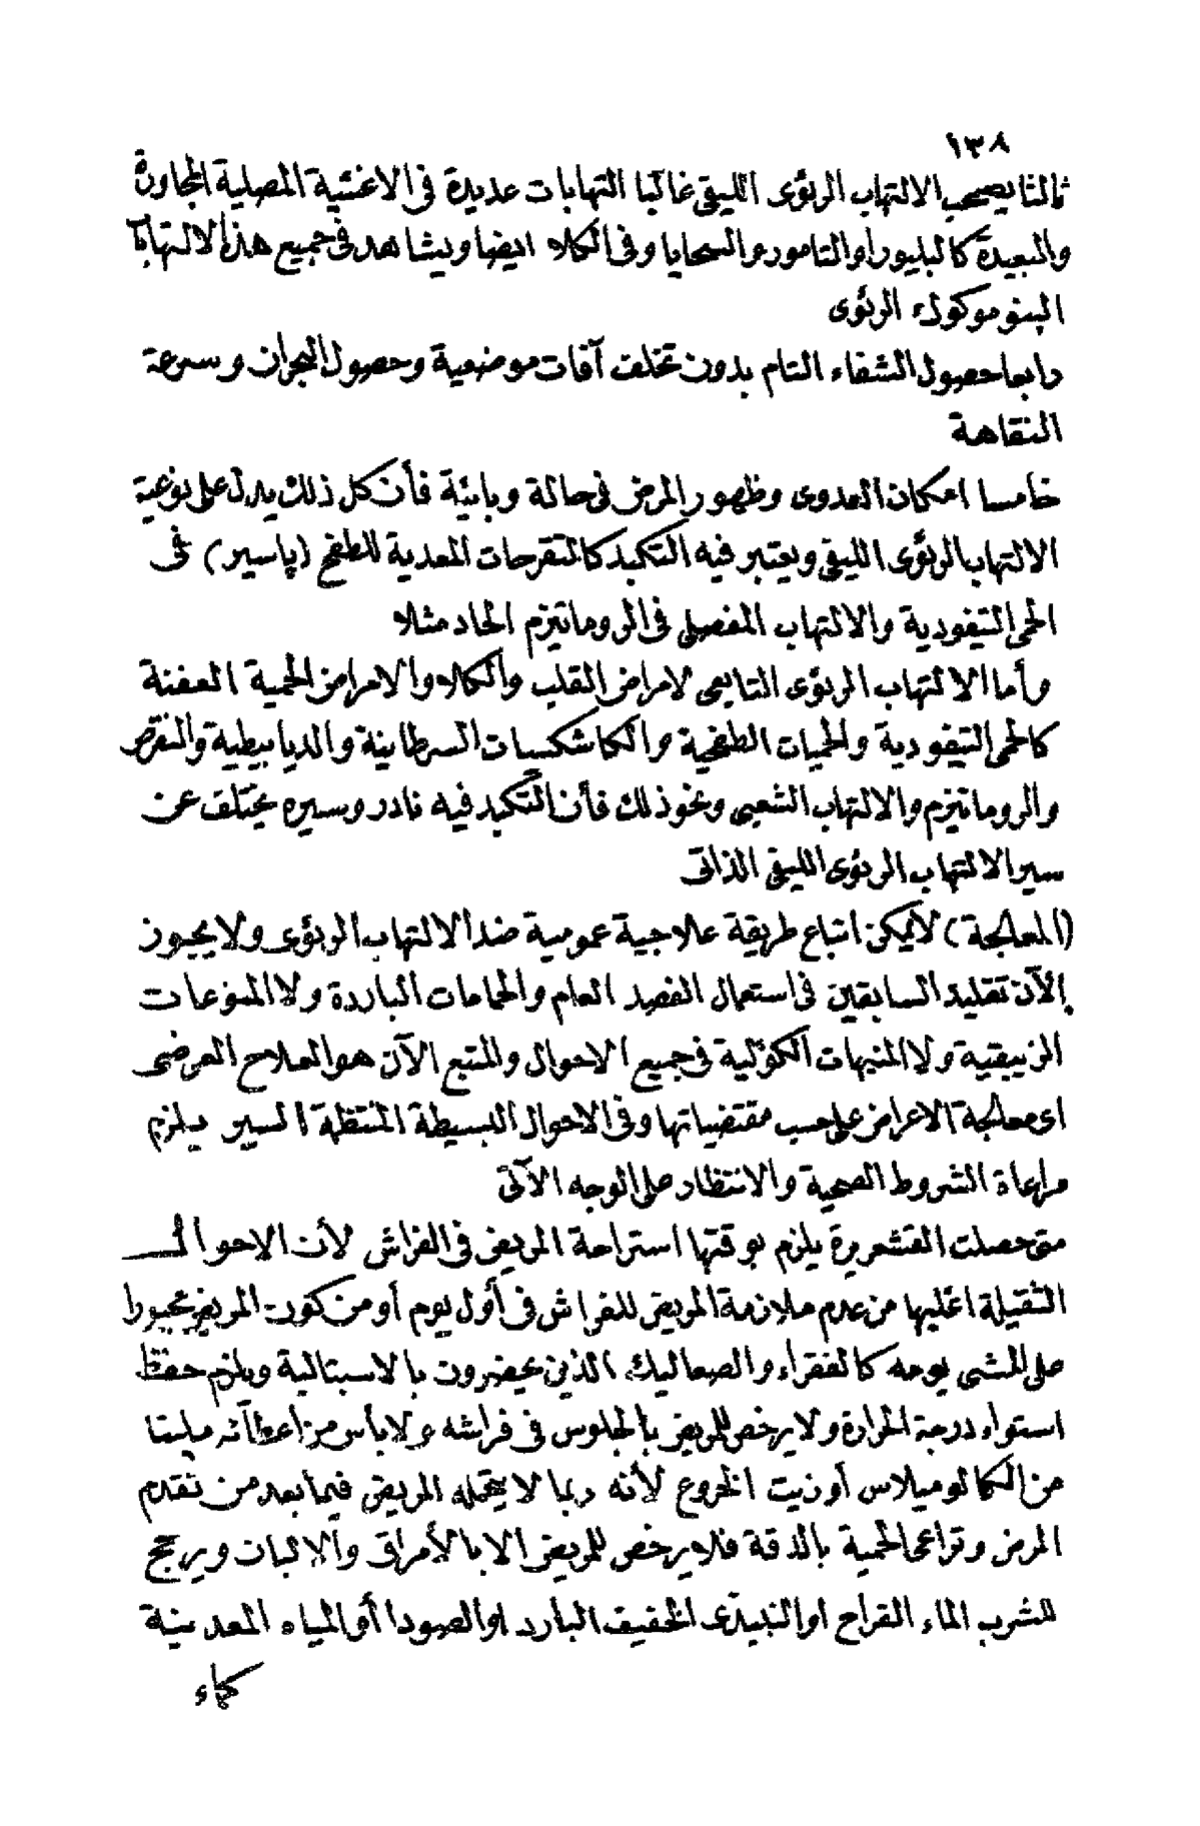 ١٣٨
ثالثا يصحب الالتهاب الرئوى الليفى غالبا التهابات عديدة فى الاغشية المصلية المجاورة
والبعيدة كالبليورا والتامور والسحايا وفى الكلا ايضا ويشاهد فى جميع هذه الالتهابات
البنوموكوك الرئوى
رابعا حصول الشفاء التام بدون تخلف آفات موضعية وحصول البحران وسرعة
النقاهة
خامسا امكان العدوى وظهور المرض فى حالة وبائية فأن كل ذلك يدل على نوعية
الالتهاب الرئوى الليفى ويعتبر فيه التكبد كالتقرحات المعدية للطفح (پاسير) فى
الحمى التيفودية والالتهاب المفصلى فى الروماتيزم الحاد مثلا
وأما الالتهاب الرئوى التابعى لامراض القلب والكلا والامراض الحمية العفنة
كالحمى التيفودية والحميات الطفحية والكاشكسيات السرطانية والديابيطية والنقرص
والروماتيزم والالتهاب الشعبى ونحو ذلك فأن التكبد فيه نادر وسيره يختلف عن
سير الالتهاب الرئوى الليفى الذاتى
(المعالجة) لا يمكن اتباع طريقة علاجية عمومية ضد الالتهاب الرئوى ولا يجوز
الآن تقليد السابقين فى استعمال الفصد العام والحمامات الباردة ولا المنوعات
الزيبقية ولا المنبهات الكؤلية فى جميع الاحوال والمتبع الآن هو العلاج العرضى
اى معالجة الاعراض على حسب مقتضياتها وفى الاحوال البسيطة المنتظمة السير يلزم
مراعاة الشروط الصحية والانتظار على الوجه الآتى
متى حصلت القشعريرة يلزم بوقتها استراحة المريض فى الفراش لأن الاحوال
الثقيلة اغلبها من عدم ملازمة المريض للفراش فى أول يوم أو من كون المريض مجبورا
على المشى يومه كالفقراء والصعاليك الذين يحضرون بالاسبتالية ويلزم حفظ
استواء درجة الحرارة ولا يرخص للمريض بالجلوس فى فراشه ولا بأس من اعطائه ملينا
من الكالوميلاس أو زيت الخروع لأنه ربما لا يتحمله المريض فيما بعد من تقدم
المرض وتراعى الحمية بالدقة فلا يرخص للمريض الا بالأمراق والالبان ويرجح
للشرب الماء القراح او النبيذى الخفيف البارد او الصودا أو المياه المعدنية
كماء